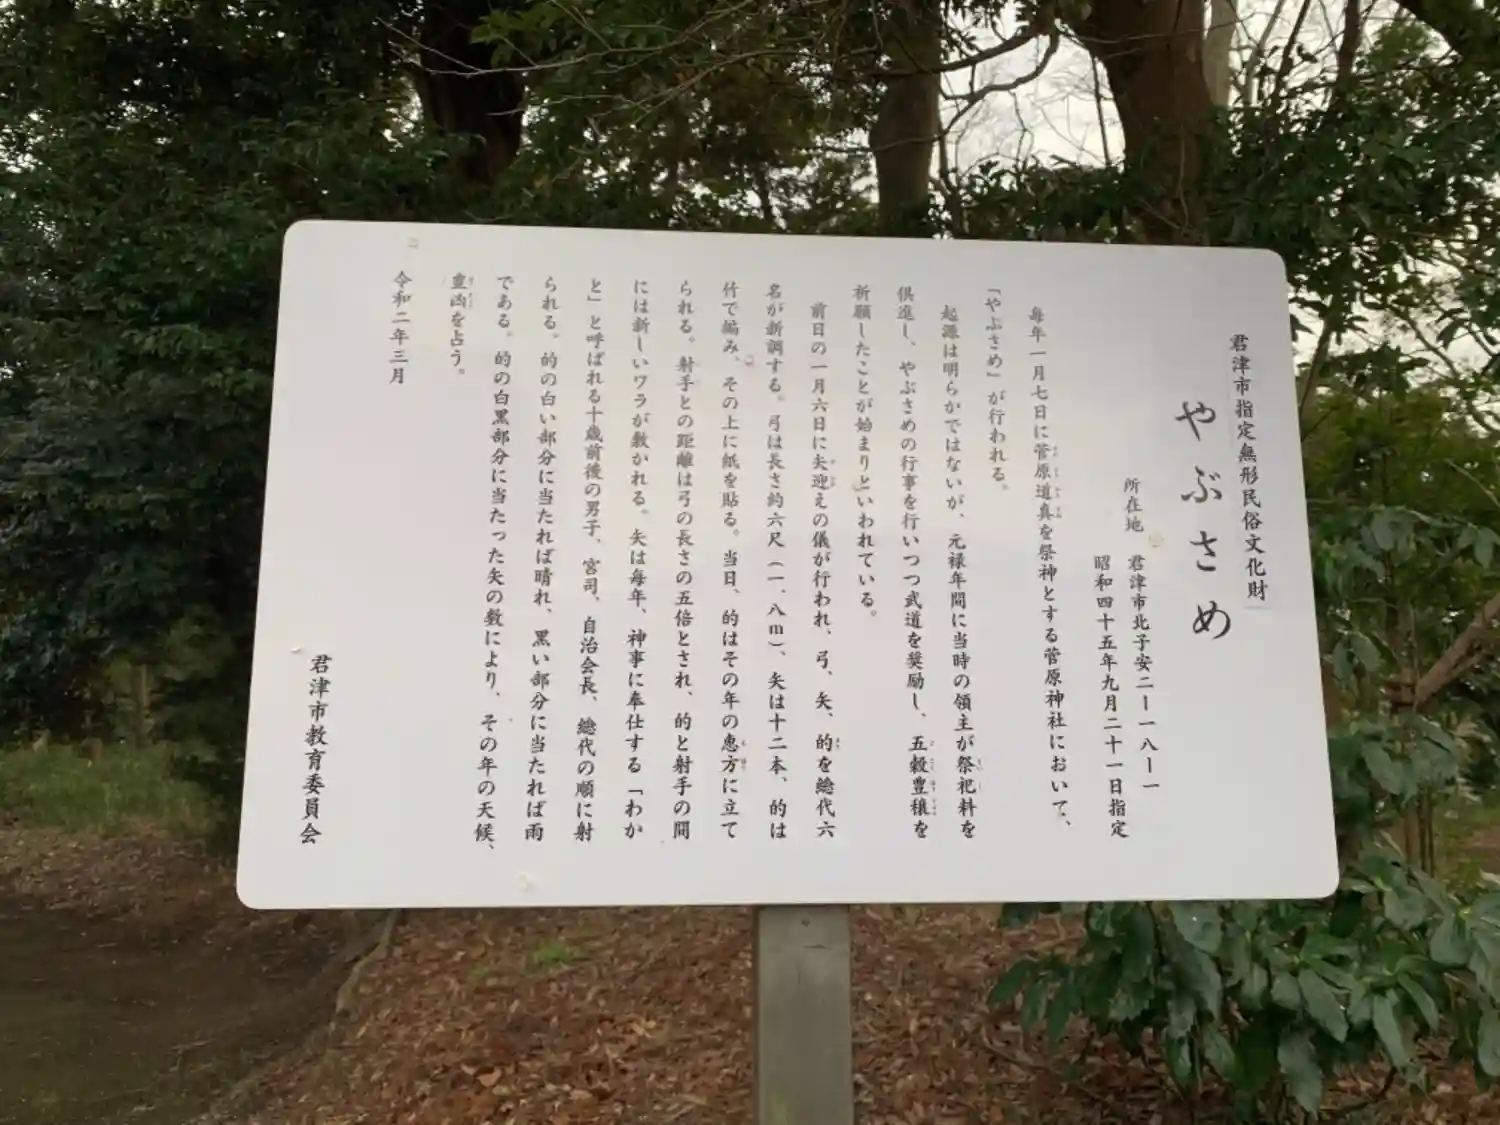 君津市指定無形民俗文化財
やぶさめ
所在地　君津市北子安二ー一八ー一
昭和四十五年九月二十一日指定
毎年一月七日に菅原道真を祭神とする菅原神社において、
「やぶさめ」が行われる。
起源は明らかではないが、元禄年間に当時の領主が祭祀料を
供進し、やぶさめの行事を行いつつ武道を奨励し、五穀豊穣を
祈願したことが始まりといわれている。
前日の一月六日に矢迎えの儀が行われ、弓、矢、的を総代六
名が新調する。弓は長さ約六尺（一、八ｍ）、矢は十二本、的は
竹で編み、その上に紙を貼る。当日、的はその年の恵方に立て
られる。射手との距離は弓の長さの五倍とされ、的と射手の間
には新しいワラが敷かれる。矢は毎年、神事に奉仕する「わか
と」と呼ばれる十歳前後の男子、宮司、自治会長、総代の順に射
られる。的の白い部分に当たれば晴れ、黒い部分に当たれば雨
である。的の白黒部分に当たった矢の数により、その年の天候、
豊凶を占う。
令和二年三月
君津市教育委員会